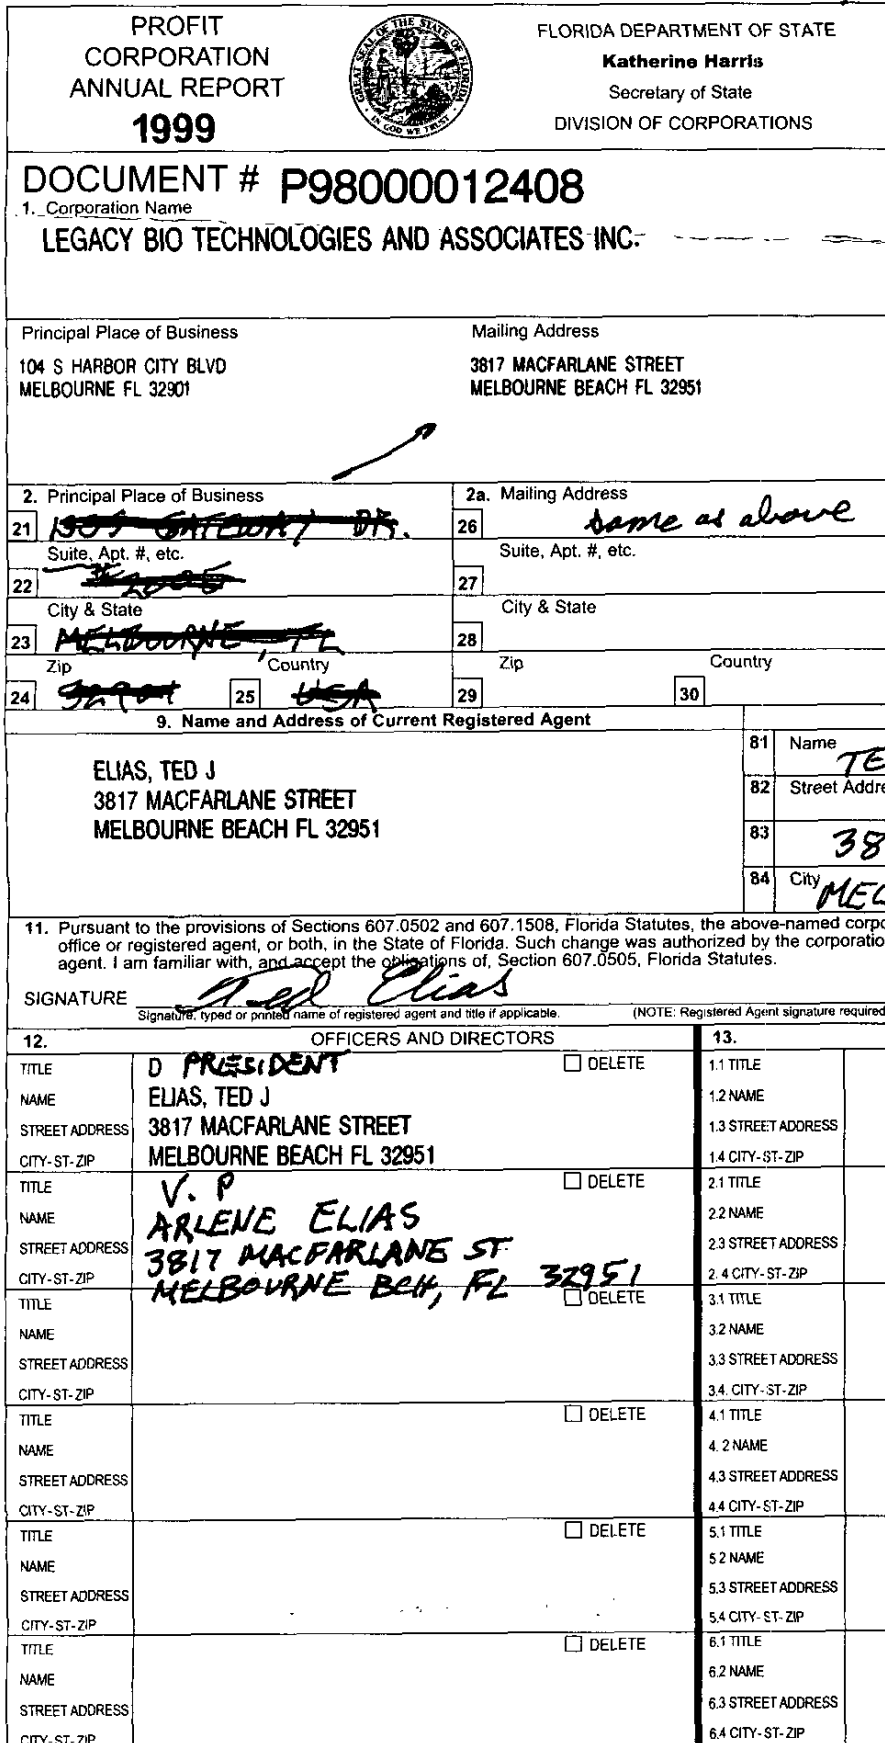 PROFIT
CORPORATION
ANNUAL REPORT
1999
GREAT SEAL OF THE STATE OF FLORIDA
IN GOD WE TRUST
FLORIDA DEPARTMENT OF STATE
Katherine Harris
Secretary of State
DIVISION OF CORPORATIONS
DOCUMENT # P98000012408
1. Corporation Name
LEGACY BIO TECHNOLOGIES AND ASSOCIATES INC.
Principal Place of Business
Mailing Address
104 S HARBOR CITY BLVD
MELBOURNE FL 32901
3817 MACFARLANE STREET
MELBOURNE BEACH FL 32951
2. Principal Place of Business
2a. Mailing Address
21 GATEWAY DR.
26 same as above
Suite, Apt. #, etc.
Suite, Apt. #, etc.
22
27
City & State
City & State
23 MELBOURNE, FL
28
Zip
Country
Zip
Country
24 25 USA
29
30
9. Name and Address of Current Registered Agent
ELIAS, TED J
3817 MACFARLANE STREET
MELBOURNE BEACH FL 32951
81 Name
TE
82 Street Addre
83 38
84 City
MEL
11. Pursuant to the provisions of Sections 607.0502 and 607.1508, Florida Statutes, the above-named corpo
office or registered agent, or both, in the State of Florida. Such change was authorized by the corporatio
agent. I am familiar with, and accept the obligations of, Section 607.0505, Florida Statutes.
SIGNATURE Ted Elias
Signature, typed or printed name of registered agent and title if applicable.
(NOTE: Registered Agent signature required
12. OFFICERS AND DIRECTORS
13.
TITLE D PRESIDENT DELETE
NAME ELIAS, TED J
STREET ADDRESS 3817 MACFARLANE STREET
CITY-ST-ZIP MELBOURNE BEACH FL 32951
1.1 TITLE
1.2 NAME
1.3 STREET ADDRESS
1.4 CITY-ST-ZIP
TITLE V.P DELETE
NAME ARLENE ELIAS
STREET ADDRESS 3817 MACFARLANE ST
CITY-ST-ZIP MELBOURNE BCH, FL 32951
2.1 TITLE
2.2 NAME
2.3 STREET ADDRESS
2.4 CITY-ST-ZIP
TITLE DELETE
NAME
STREET ADDRESS
CITY-ST-ZIP
3.1 TITLE
3.2 NAME
3.3 STREET ADDRESS
3.4. CITY-ST-ZIP
TITLE DELETE
NAME
STREET ADDRESS
CITY-ST-ZIP
4.1 TITLE
4.2 NAME
4.3 STREET ADDRESS
4.4 CITY-ST-ZIP
TITLE DELETE
NAME
STREET ADDRESS
CITY-ST-ZIP
5.1 TITLE
5.2 NAME
5.3 STREET ADDRESS
5.4 CITY-ST-ZIP
TITLE DELETE
NAME
STREET ADDRESS
CITY-ST-ZIP
6.1 TITLE
6.2 NAME
6.3 STREET ADDRESS
6.4 CITY-ST-ZIP